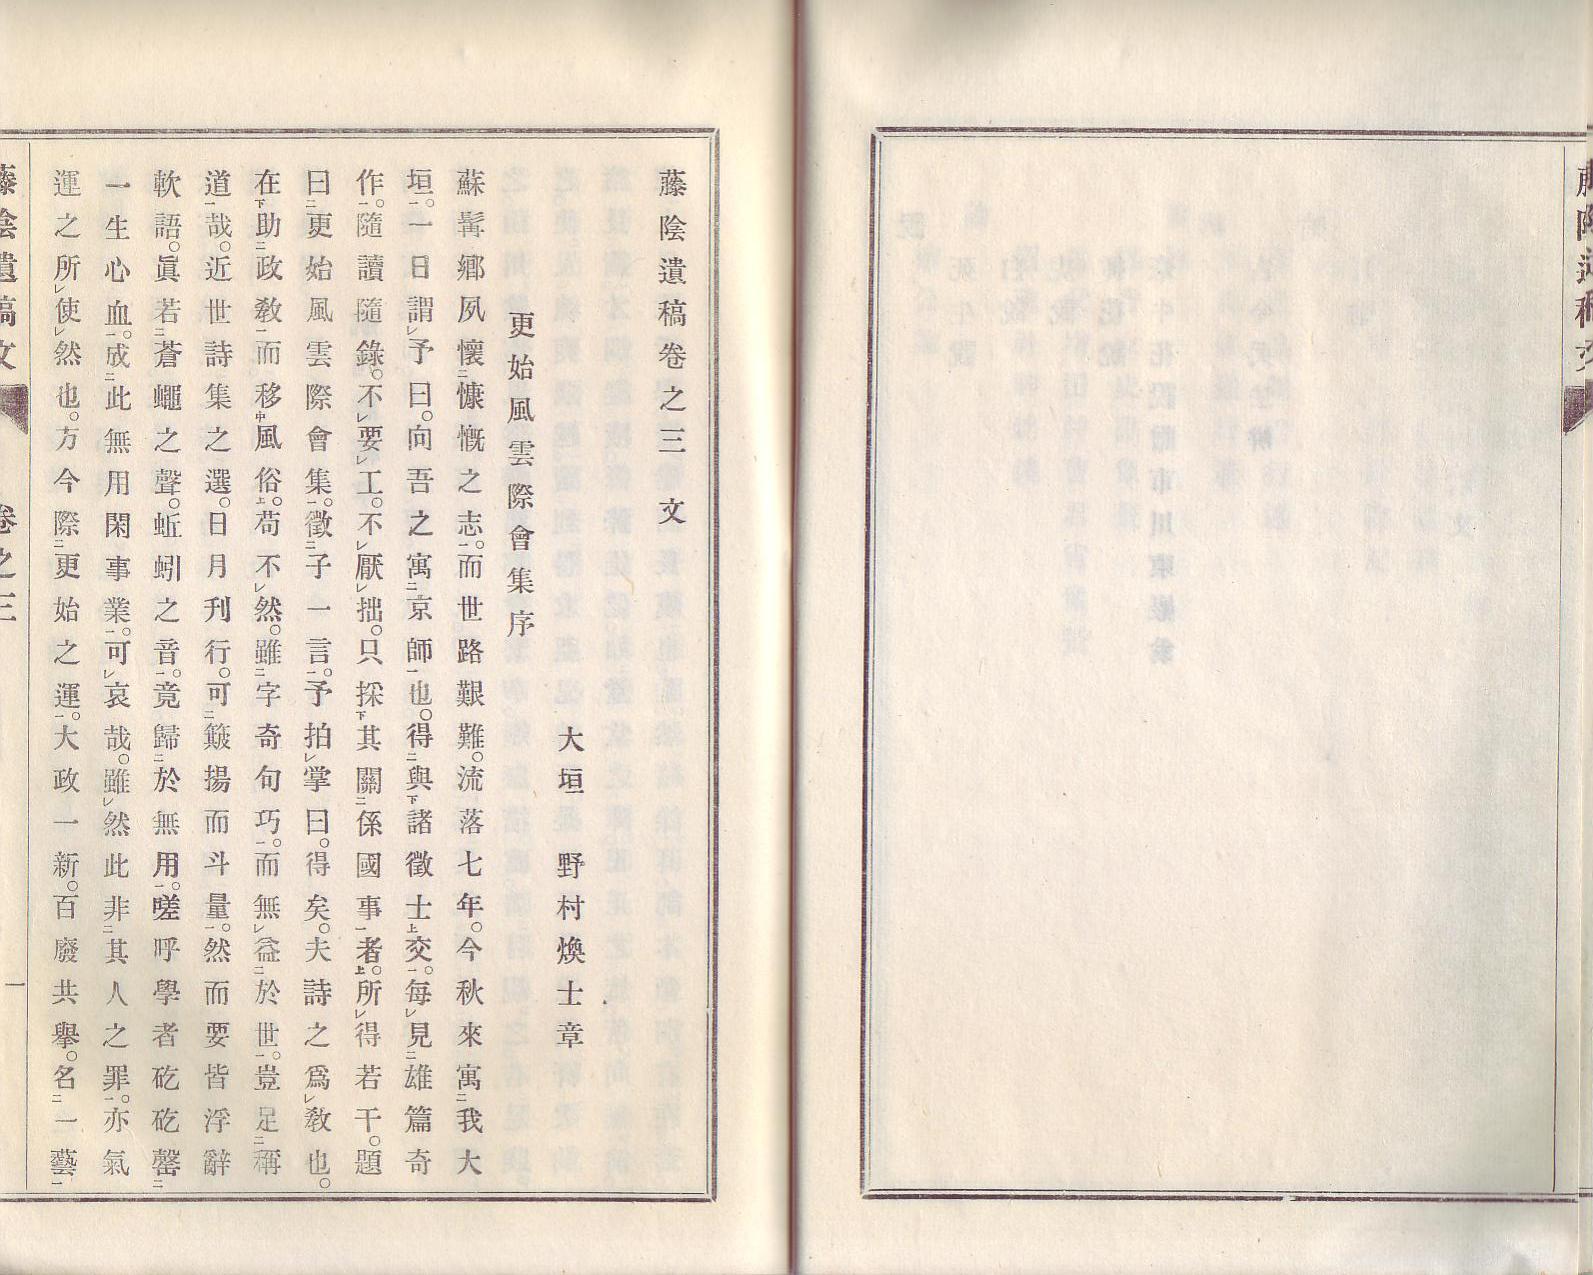 藤陰遺稿卷之三　文
大垣　野村煥士章
更始風雲際會集序
蘇髯鄉夙懷㆓慷慨之志㆒。而世路艱難。流落七年。今秋來寓㆓我大
垣㆒。一日謂㆑予曰。向吾之寓㆓京師㆒也。得㆘與㆓諸徵士㆖交㆒。每㆑見㆓雄篇奇
作㆒。隨讀隨錄。不㆑要㆑工。不㆑厭㆑拙。只採㆘其關㆓係國事㆒者㆖。所㆑得若干。題
曰㆓更始風雲際會集㆒。徵㆓予一言㆒。予拍㆑掌曰。得矣。夫詩之爲㆑敎也。
在㆘助㆓政敎㆒而移㆗風俗㆖。苟不㆑然。雖㆓字奇句巧㆒。而無㆑益㆓於世㆒。豈足㆓稱
道㆒哉。近世詩集之選。日月刊行。可㆓簸揚而斗量㆒。然而要皆浮辭
軟語。眞若㆓蒼蠅之聲。蚯蚓之音㆒。竟歸㆓於無用㆒。嗟呼學者矻矻罄㆓
一生心血㆒。成㆓此無用閑事業㆒。可㆑哀哉。雖㆑然此非㆓其人之罪㆒。亦氣
運之所㆑使㆑然也。方今際㆓更始之運㆒。大政一新。百廢共擧。名㆓一藝㆒
藤陰遺稿文　卷之三　一